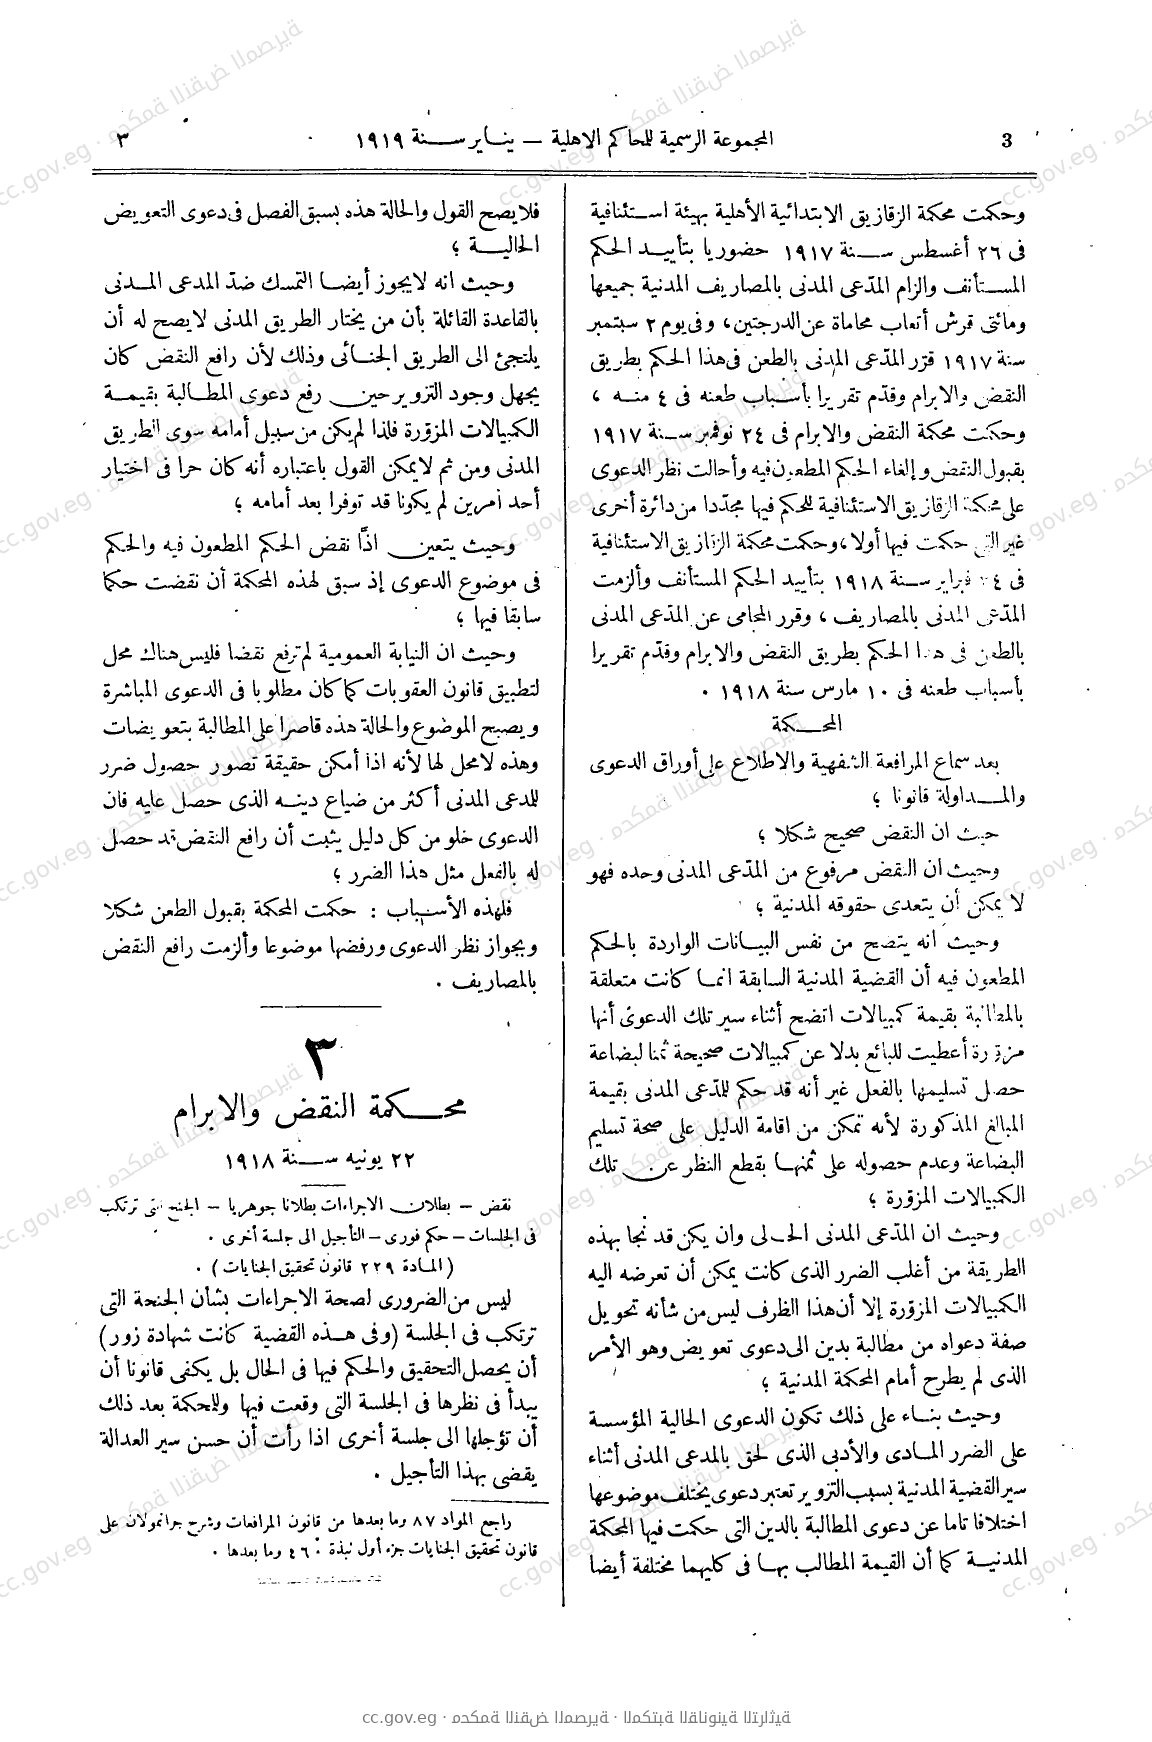 3
المجموعة الرسمية للمحاكم الاهلية — ينـاير سـنة ١٩١٩
٣
وحكمت محكمة الزقازيق الابتدائية الأهلية بهيئة استئنافية
فى ٢٦ أغسطس سـنة ١٩١٧ حضوريا بتأييد الحكم
المستأنف والزام المدّعى المدنى بالمصاريف المدنية جميعها
ومائتى قرش أتعاب محاماة عن الدرجتين، وفى يوم ٢ سبتمبر
سنة ١٩١٧ قرّر المدّعى المدنى بالطعن فى هذا الحكم بطريق
النقض والابرام وقدّم تقريرا بأسباب طعنه فى ٤ منه ،
وحكمت محكمة النقض والابرام فى ٢٤ نوفمبر سـنة ١٩١٧
بقبول النقض وإلغاء الحكم المطعون فيه وأحالت نظر الدعوى
على محكمة الزقازيق الاستئنافية للحكم فيها مجدّدا من دائرة أخرى
غير التى حكمت فيها أولا، وحكمت محكمة الزقازيق الاستئنافية
فى فبراير سـنة ١٩١٨ بتأييد الحكم المستأنف وألزمت
المدّعى المدنى بالمصاريف ، وقرر المحامى عن المدّعى المدنى
بالطعن فى هذا الحكم بطريق النقض والابرام وقدّم تقريرا
بأسباب طعنه فى ١٠ مارس سنة ١٩١٨ .
المحـكمة
بعد سماع المرافعة الشفهية والاطلاع على أوراق الدعوى
والمـداولة قانونا ؛
حيث ان النقض صحيح شكلا ؛
وحيث ان النقض مرفوع من المدّعى المدنى وحده فهو
لا يمكن أن يتعدى حقوقه المدنية ؛
وحيث انه يتضح من نفس البيانات الواردة بالحكم
المطعون فيه أن القضية المدنية السابقة انما كانت متعلقة
بالمطالبة بقيمة كمبيالات اتضح أثناء سير تلك الدعوى أنها
مزوّرة أعطيت للبائع بدلا عن كمبيالات صحيحة ثمنا لبضاعة
حصل تسليمها بالفعل غير أنه قد حكم للمدّعى المدنى بقيمة
المبالغ المذكورة لأنه تمكن من اقامة الدليل على صحة تسليم
البضاعة وعدم حصوله على ثمنها بقطع النظر عن تلك
الكمبيالات المزوّرة ؛
وحيث ان المدّعى المدنى الحـالى وان يكن قد نجا بهذه
الطريقة من أغلب الضرر الذى كانت يمكن أن تعرضه اليه
الكمبيالات المزوّرة إلا أن هذا الظرف ليس من شأنه تحويل
صفة دعواه من مطالبة بدين الى دعوى تعويض وهو الأمر
الذى لم يطرح أمام المحكمة المدنية ؛
وحيث بنـاء على ذلك تكون الدعوى الحالية المؤسسة
على الضرر المـادى والأدبى الذى لحق بالمدعى المدنى أثناء
سير القضية المدنية بسبب التزوير تعتبر دعوى يختلف موضوعها
اختلافا تاما عن دعوى المطالبة بالدين التى حكمت فيها المحكمة
المدنيـة كما أن القيمة المطالب بهـا فى كليهما مختلفة أيضا
فلا يصح القول والحالة هذه بسبق الفصل فى دعوى التعويض
الحاليـة ؛
وحيث انه لا يجوز أيضـا التمسك ضدّ المدعى المـدنى
بالقاعدة القائلة بأن من يختار الطريق المدنى لا يصح له أن
يلتجئ الى الطريق الجنـائى وذلك لأن رافع النقض كان
يجهل وجود التزوير حين رفع دعوى المطـالبة بقيمـة
الكمبيالات المزوّرة فلذا لم يكن من سبيل أمامه سوى الطريق
المدنى ومن ثم لا يمكن القول باعتباره أنه كان حرا فى اختيار
أحد أمرين لم يكونا قد توفرا بعد أمامه ؛
وحيث يتعين اذًا نقض الحكم المطعون فيه والحكم
فى موضوع الدعوى إذ سبق لهذه المحكمة أن نقضت حكما
سابقا فيها ؛
وحيث ان النيابة العمومية لم ترفع نقضا فليس هناك محل
لتطبيق قانون العقوبات كما كان مطلوبا فى الدعوى المباشرة
ويصبح الموضوع والحالة هذه قاصرا على المطالبة بتعويضات
وهذه لا محل لها لأنه اذا أمكن حقيقة تصور حصول ضرر
للمدعى المدنى أكثر من ضياع دينـه الذى حصل عليه فان
الدعوى خلو من كل دليل يثبت أن رافع النقض قد حصل
له بالفعل مثل هذا الضرر ؛
فلهذه الأسباب : حكمت المحكمة بقبول الطعن شكلا
وبجواز نظر الدعوى ورفضها موضوعا وألزمت رافع النقض
بالمصاريف .
٣
محـكمة النقض والابرام
٢٢ يونيه سـنة ١٩١٨
نقض – بطلان الاجراءات بطلانا جوهريا – الجنح التى ترتكب
فى الجلسات – حكم فورى – التأجيل الى جلسة أخرى .
( المـادة ٢٢٩ قانون تحقيق الجنايات ) .
ليس من الضرورى لصحة الاجراءات بشأن الجنحة التى
ترتكب فى الجلسة (وفى هـذه القضية كانت شهادة زور)
أن يحصل التحقيق والحكم فيها فى الحال بل يكفى قانونا أن
يبدأ فى نظرها فى الجلسة التى وقعت فيها وللمحكمة بعد ذلك
أن تؤجلها الى جلسة أخرى اذا رأت أن حسن سير العدالة
يقضى بهذا التأجيل .
راجع المواد ٨٧ وما بعدها من قانون المرافعات وشرح جرانمولان على
قانون تحقيق الجنايات جزء أول نبذة ٤٦٠ وما بعدها .
cc.gov.eg · محكمة النقض المصرية · المكتبة القانونية التراثية